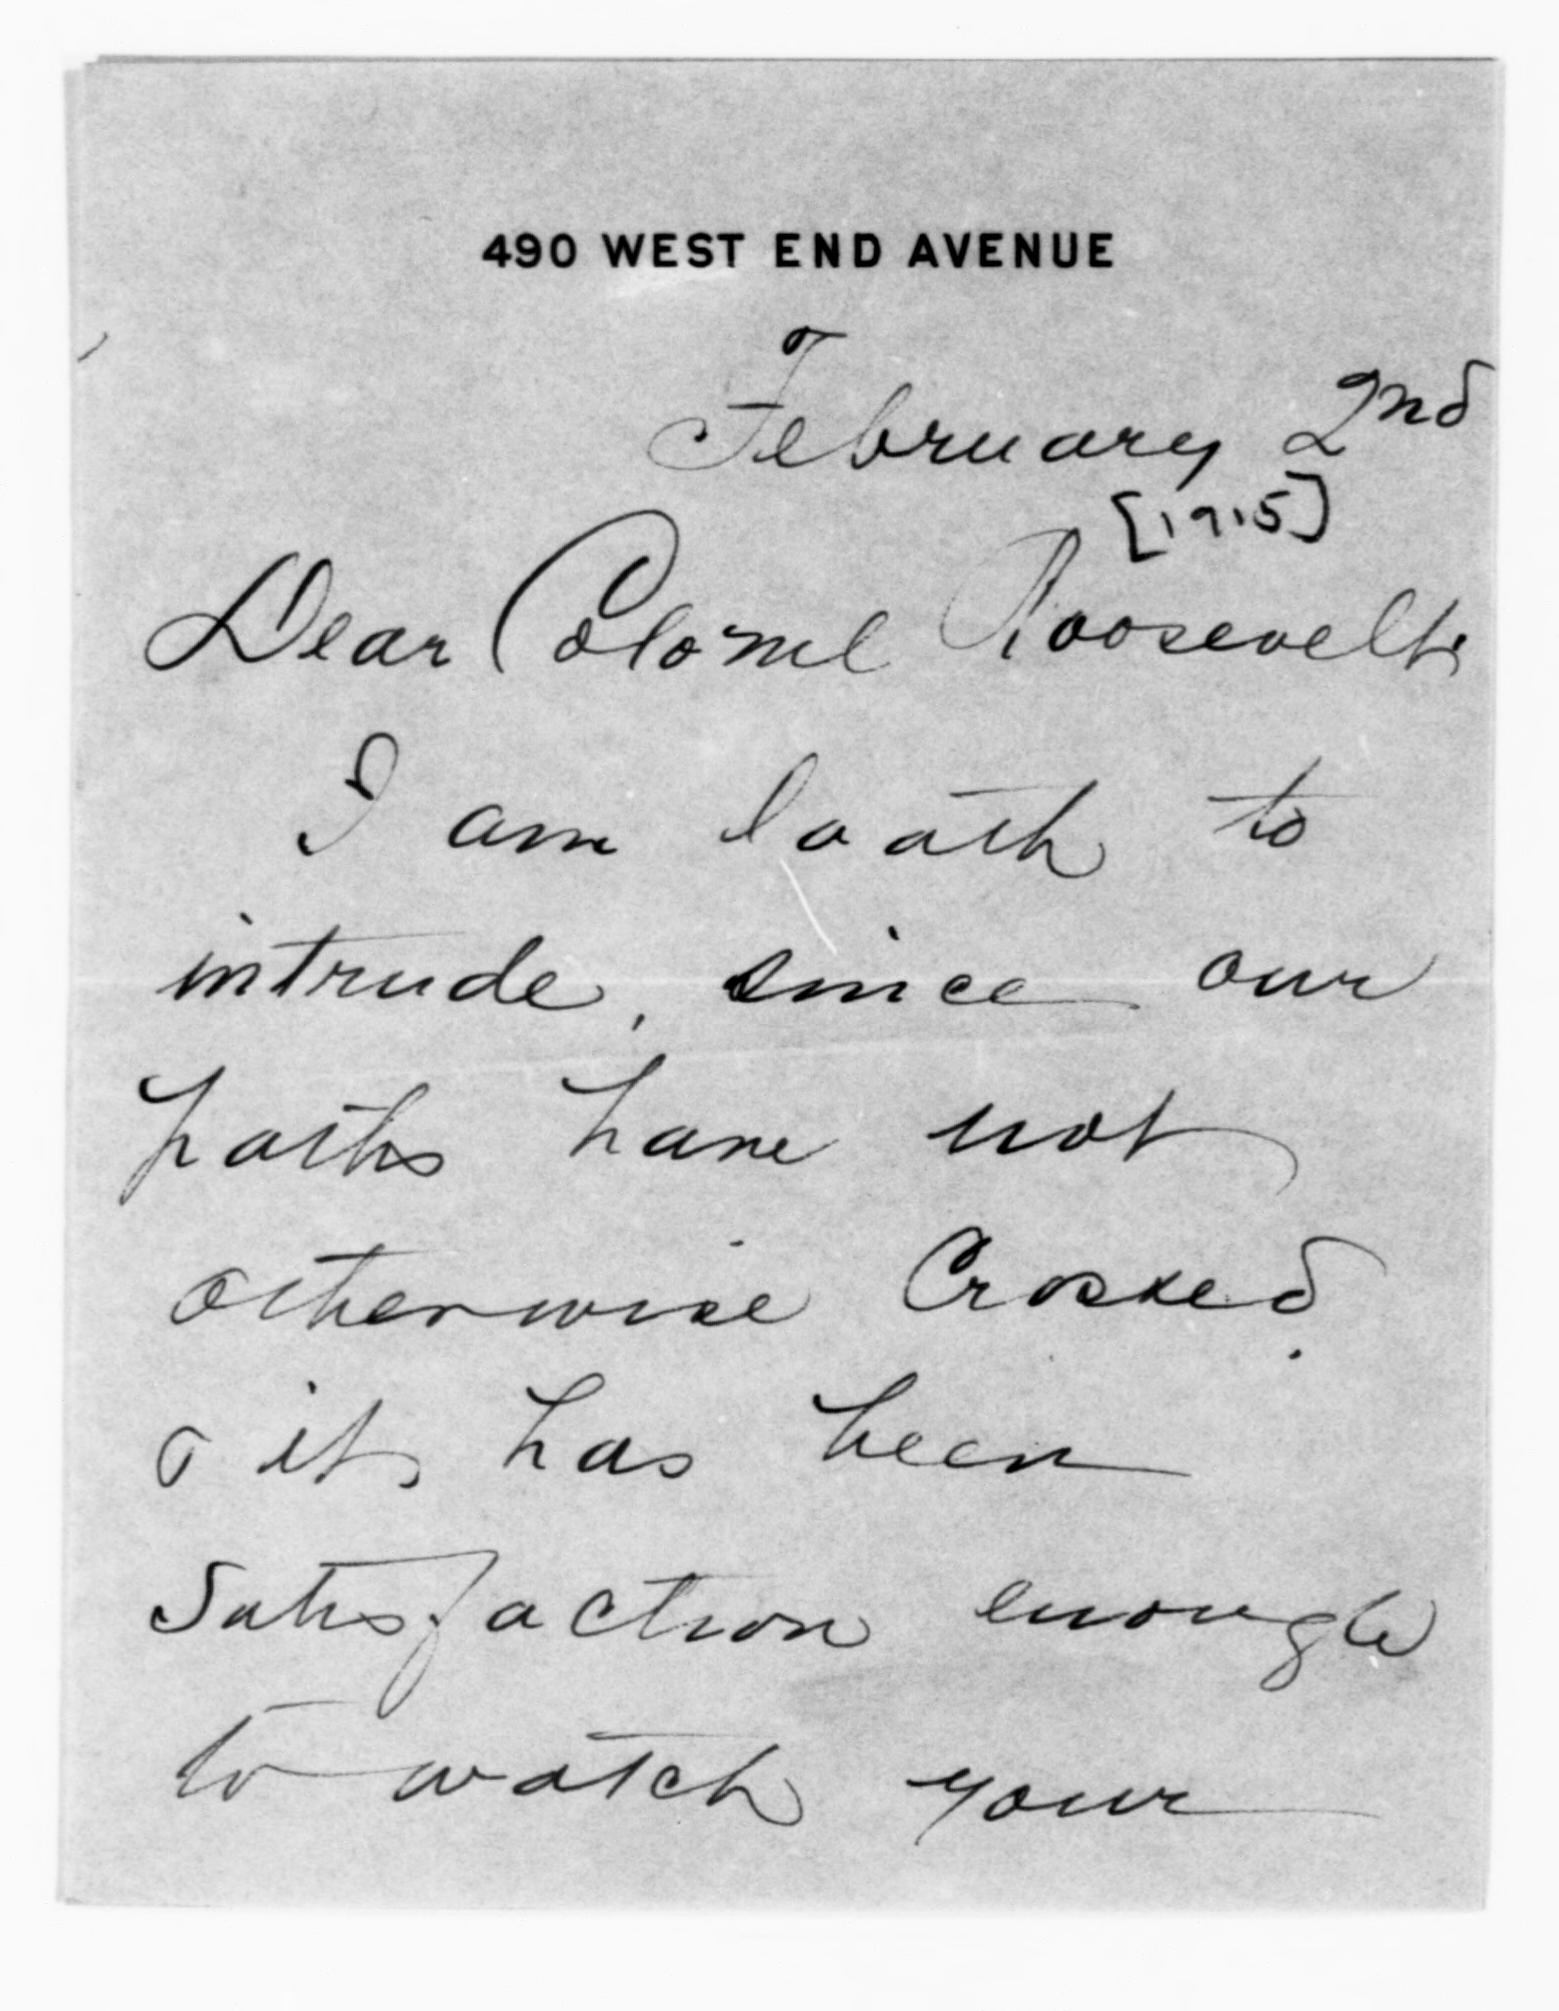 490 WEST END AVENUE
February 2nd
[1915]
Dear Colonel Roosevelt,
I am loath to
intrude, since our
paths have not
otherwise crossed.
& it has been
satisfaction enough
to watch your